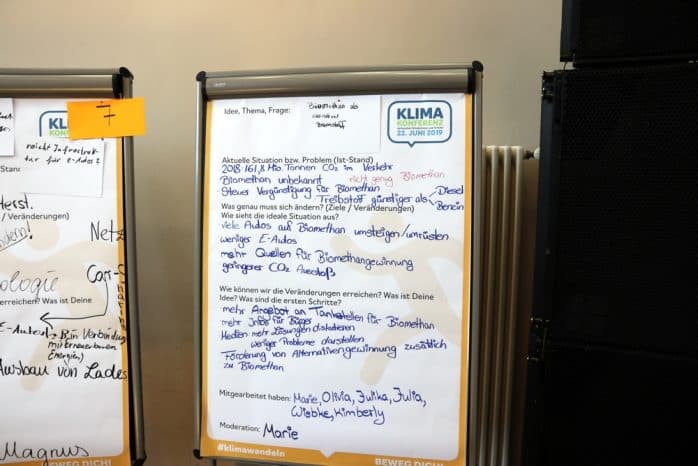 7
KLIMA
KONFERENZ
reicht Infrastruk-
tur für E-Autos?
Stand)
Herst.
/ Veränderungen)
Netz
ologie
erreichen? Was ist Deine
E-Autos: Bsp in Verbindung
mit erneuerbaren
Energien)
Ausbau von Lades
Magnus
BEWEG DICH!
Idee, Thema, Frage:
Biomethan als
Biokraftstoff
KLIMA
KONFERENZ
22. JUNI 2019
Aktuelle Situation bzw. Problem (Ist-Stand)
2018: 161,8 Mio. Tonnen CO2 im Verkehr
Biomethan unbekannt nicht genig Biomethan
- Steuer Vergünstigung für Biomethan
- Treibstoff günstiger als Diesel
Benzin
Was genau muss sich ändern? (Ziele / Veränderungen)
Wie sieht die ideale Situation aus?
viele Autos auf Biomethan umsteigen/umrüsten
weniger E-Autos
mehr Quellen für Biomethangewinnung
geringerer CO2 Ausstoß
Wie können wir die Veränderungen erreichen? Was ist Deine
Idee? Was sind die ersten Schritte?
mehr Angebot an Tankstellen für Biomethan
mehr Infos für Bürger
Medien mehr Lösungen diskutieren
weniger Probleme darstellen
Förderung von Alternativengewinnung zusätzlich
zu Biomethan
Mitgearbeitet haben: Marie, Olivia, Julika, Julia,
Wiebke, Kimberly
Moderation: Marie
#klimawandeln
BEWEG DICH!